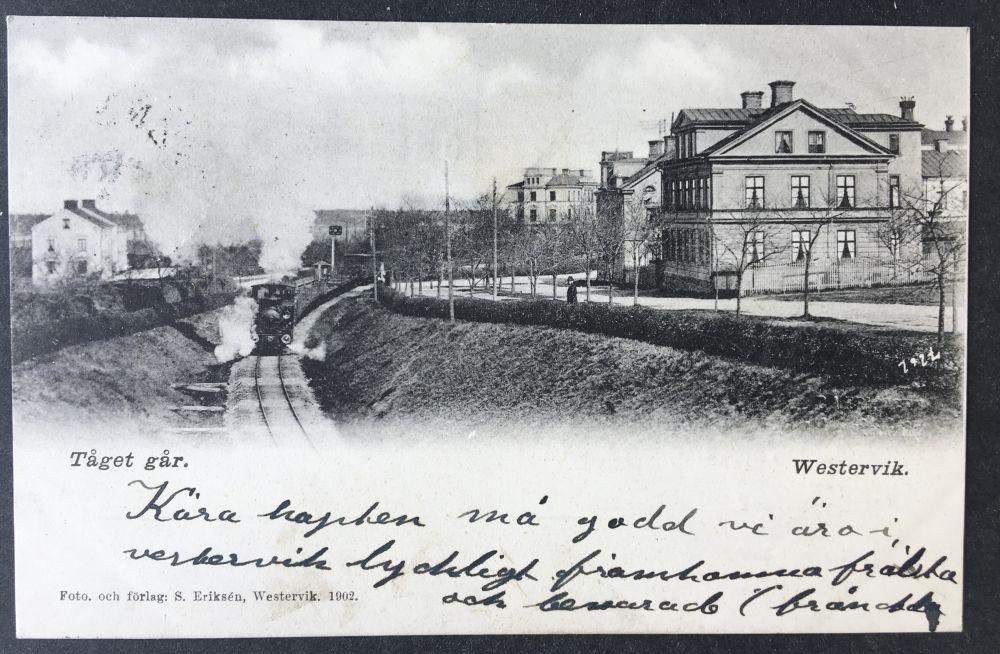 Tåget går.
Westervik.
Kära hapten må godd vi äro i,
vestervik lyckligt framkomna frälsta
och bevarad
Foto. och förlag: S. Eriksén, Westervik. 1902.